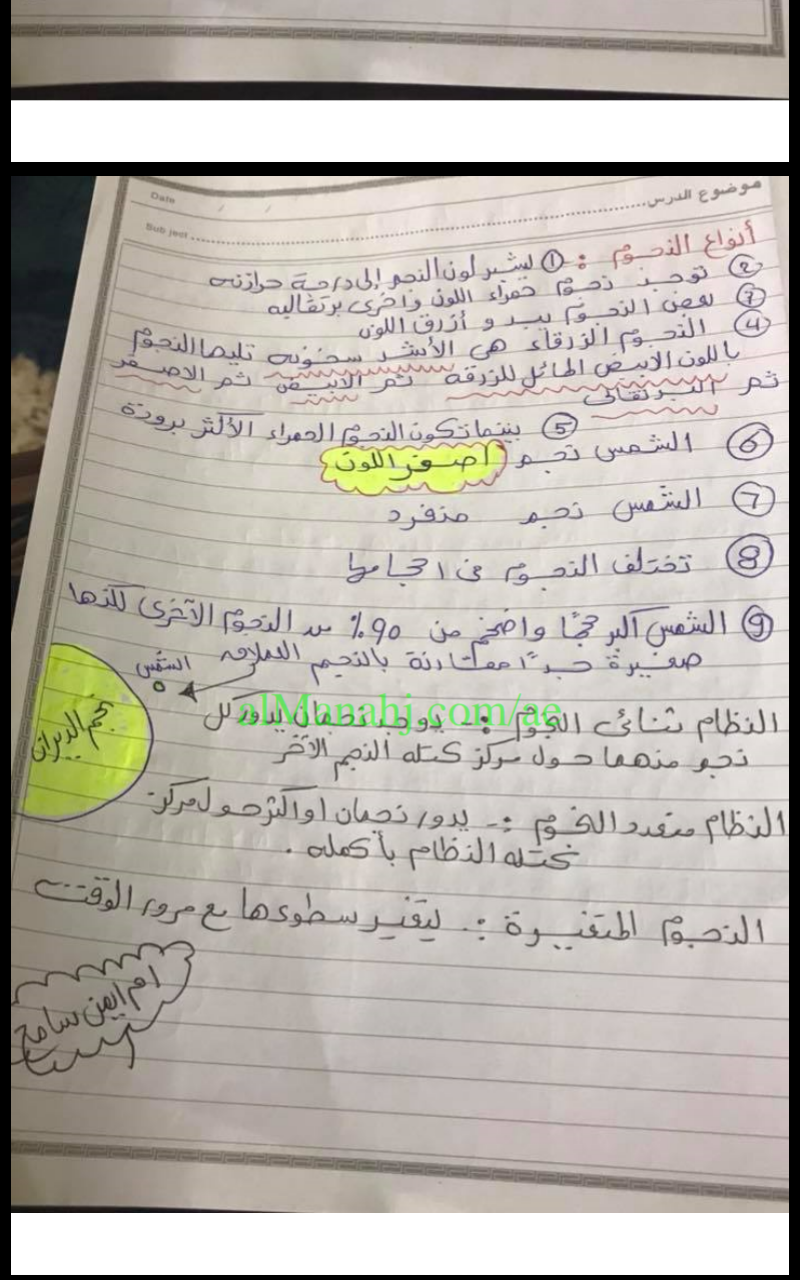 موضوع الدرس
Date / /
Sub ject
أنواع النجوم : ① يشير لون النجم إلى درجة حرارته
② توجد نجوم حمراء اللون واخرى برتقاليه
③ بعض النجوم يبدو أزرق اللون
④ النجوم الزرقاء هي الأشد سخونه تليها النجوم
باللون الابيض المائل للزرقة ثم الابيض ثم الاصفر
ثم البرتقالى
⑤ بينما تكون النجوم الحمراء الأكثر برودة
⑥ الشمس نجم اصفر اللون
⑦ الشمس نجم منفرد
⑧ تختلف النجوم فى احجامها
⑨ الشمس اكبر حجمًا واضخم من 90% من النجوم الآخرى لكنها
صغيرة جدًا مقارنة بالنجم العملاقه
الشمس
نجم الدبران
alManahj.com/ae
النظام ثنائى النجوم :- يوجد نجمان يدور كل
نجم منهما حول مركز كتله النجم الآخر
النظام متعدد النجوم :- يدور نجمان او اكثر حول مركز
كتله النظام بأكمله .
النجوم المتغيرة :- يتغير سطوعها مع مرور الوقت
ام ايمن سامح